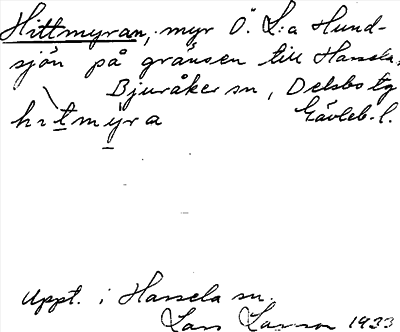 Hittmyran, myr Ö. L:a Hund-
sjön på gränsen till Hassela,
Bjuråker sn, Delsbo tg
hìtmyra Gävleb. l.
Uppt. i Hassela sn.
Lars Larsson 1933